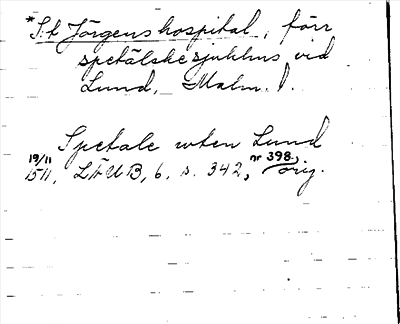 *S:t Jörgens hospital, förr
spetälskesjukhus vid
Lund, Malm. l.
Spetale uten Lund
19/11 1511, LÄUB, 6, s. 342, nr 398, orig.